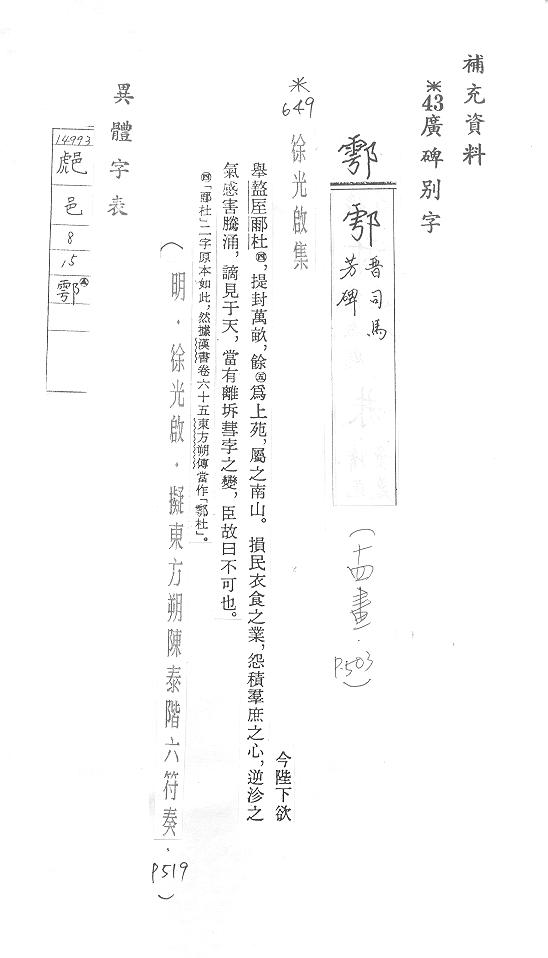 補充資料
*43廣碑别字
鄠
鄠 晋司馬
芳碑
(十四畫．
P.503)
*
649
徐光啟集
今陛下欲
舉盩厔鄏杜㈣，提封萬畝，餘㈤爲上苑，屬之南山。損民衣食之業，怨積羣庶之心，逆沴之
氣感害騰涌，謫見于天，當有離坼彗孛之變，臣故曰不可也。
㈣「鄏杜」二字原本如此，然據漢書卷六十五東方朔傳當作「鄠杜」。
(明．徐光啟．擬東方朔陳泰階六符奏．
P519)
異體字表
14993
邑
8
15
鄠